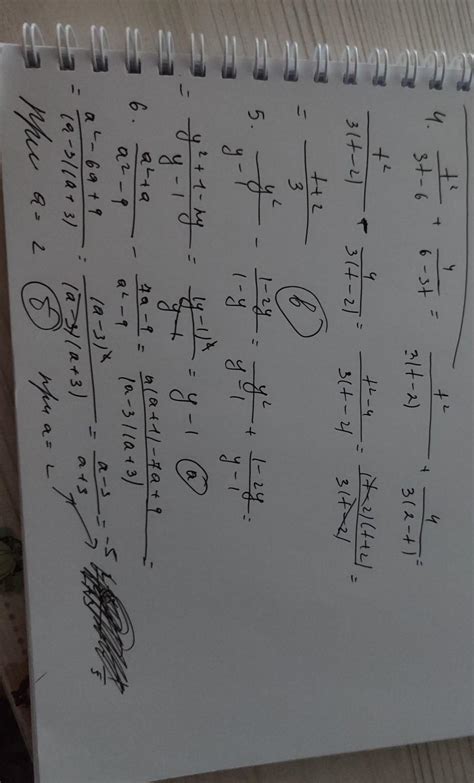 4. t²/(3t-6) + 4/(6-3t) = t²/(3(t-2)) + 4/(3(2-t)) =
t²/(3(t-2)) - 4/(3(t-2)) = (t²-4)/(3(t-2)) = ((t-2)(t+2))/(3(t-2)) =
= (t+2)/3 в
5. y²/(y-1) - (1-2y)/(1-y) = y²/(y-1) + (1-2y)/(y-1) =
= (y²+1-2y)/(y-1) = (y-1)²/(y-1) = y-1 а
6. (a²+a)/(a²-9) - (7a-9)/(a²-9) = (a(a+1)-7a+9)/((a-3)(a+3)) =
= (a²-6a+9)/((a-3)(a+3)) = (a-3)²/((a-3)(a+3)) = (a-3)/(a+3) = -5
при a = 2 б при a = 2